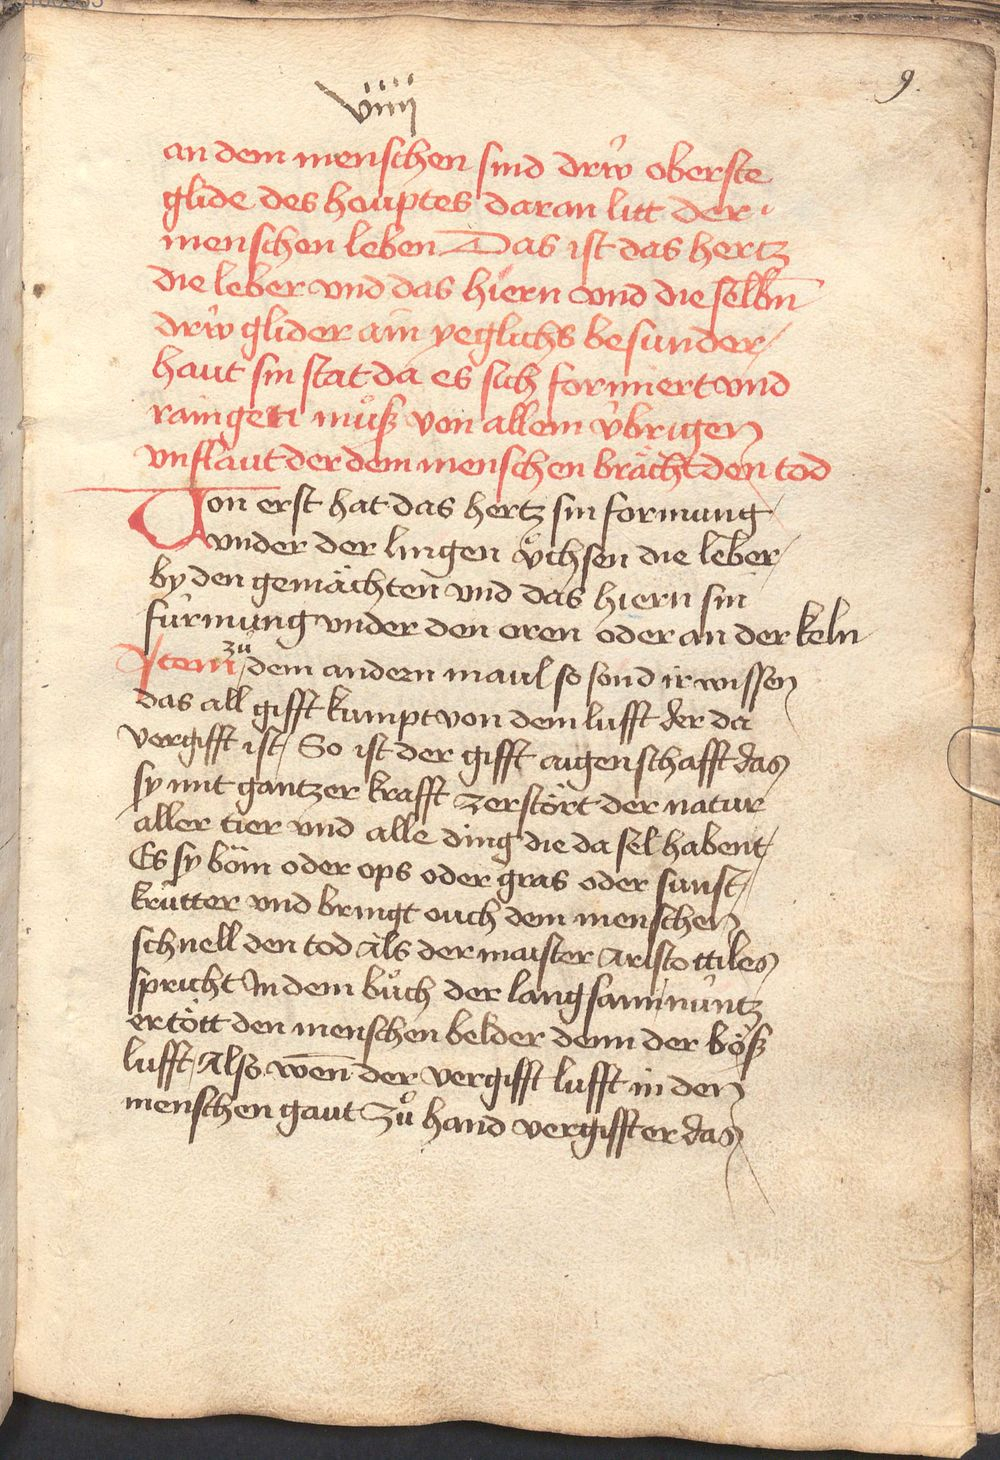 9.
viiij
an dem menschen sind drẃ oberste
glide des houptes daran litt der
menschen leben Das ist das hertz
die leber vnd das hiern vnd die selbn̄
drẃ glider ain yeglichs besunder
haut sin stat da es sich formiert vnd
raingen můß von allem v́brigen
vnflaut der dem menschen brächt den tod
Von erst hat das hertz sin formung
vnder der lingen v̊chsen die leber
by den gemächten vnd das hiern sin
furmung vnder den oren oder an der keln
Item zů dem andern maul so sond ir wissen
das all gifft kumpt von dem lufft der da
vergifft ist / So ist der gifft aigenschafft das
sy mit gantzer krafft zerstört der natur
aller tier vnd alle ding die da sel habent
Es sy böm oder ops oder gras oder sunst
krütter vnd bringt ouch dem menschen
schnell den tod Als der maister Aristottiles
spricht In dem bůch der langsam múntz
ertött den menschen belder denn der böß
lufft / Also wen̄ der vergifft lufft in den
menschen gaut Zů hand vergifft er das